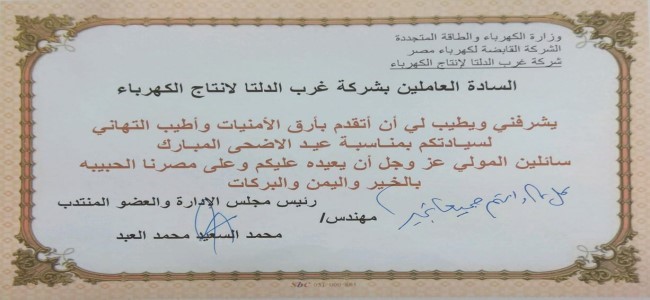 وزارة الكهرباء والطاقة المتجددة
الشركة القابضة لكهرباء مصر
شركة غرب الدلتا لإنتاج الكهرباء
السادة العاملين بشركة غرب الدلتا لانتاج الكهرباء
يشرفني ويطيب لي أن أتقدم بأرق الأمنيات وأطيب التهاني
لسيادتكم بمناسبة عيد الاضحى المبارك
سائلين المولي عز وجل أن يعيده عليكم وعلى مصرنا الحبيبه
بالخير واليمن والبركات
رئيس مجلس الإدارة والعضو المنتدب
كل عام وانتم جميعا بخير
مهندس/
محمد السعيد محمد العبد